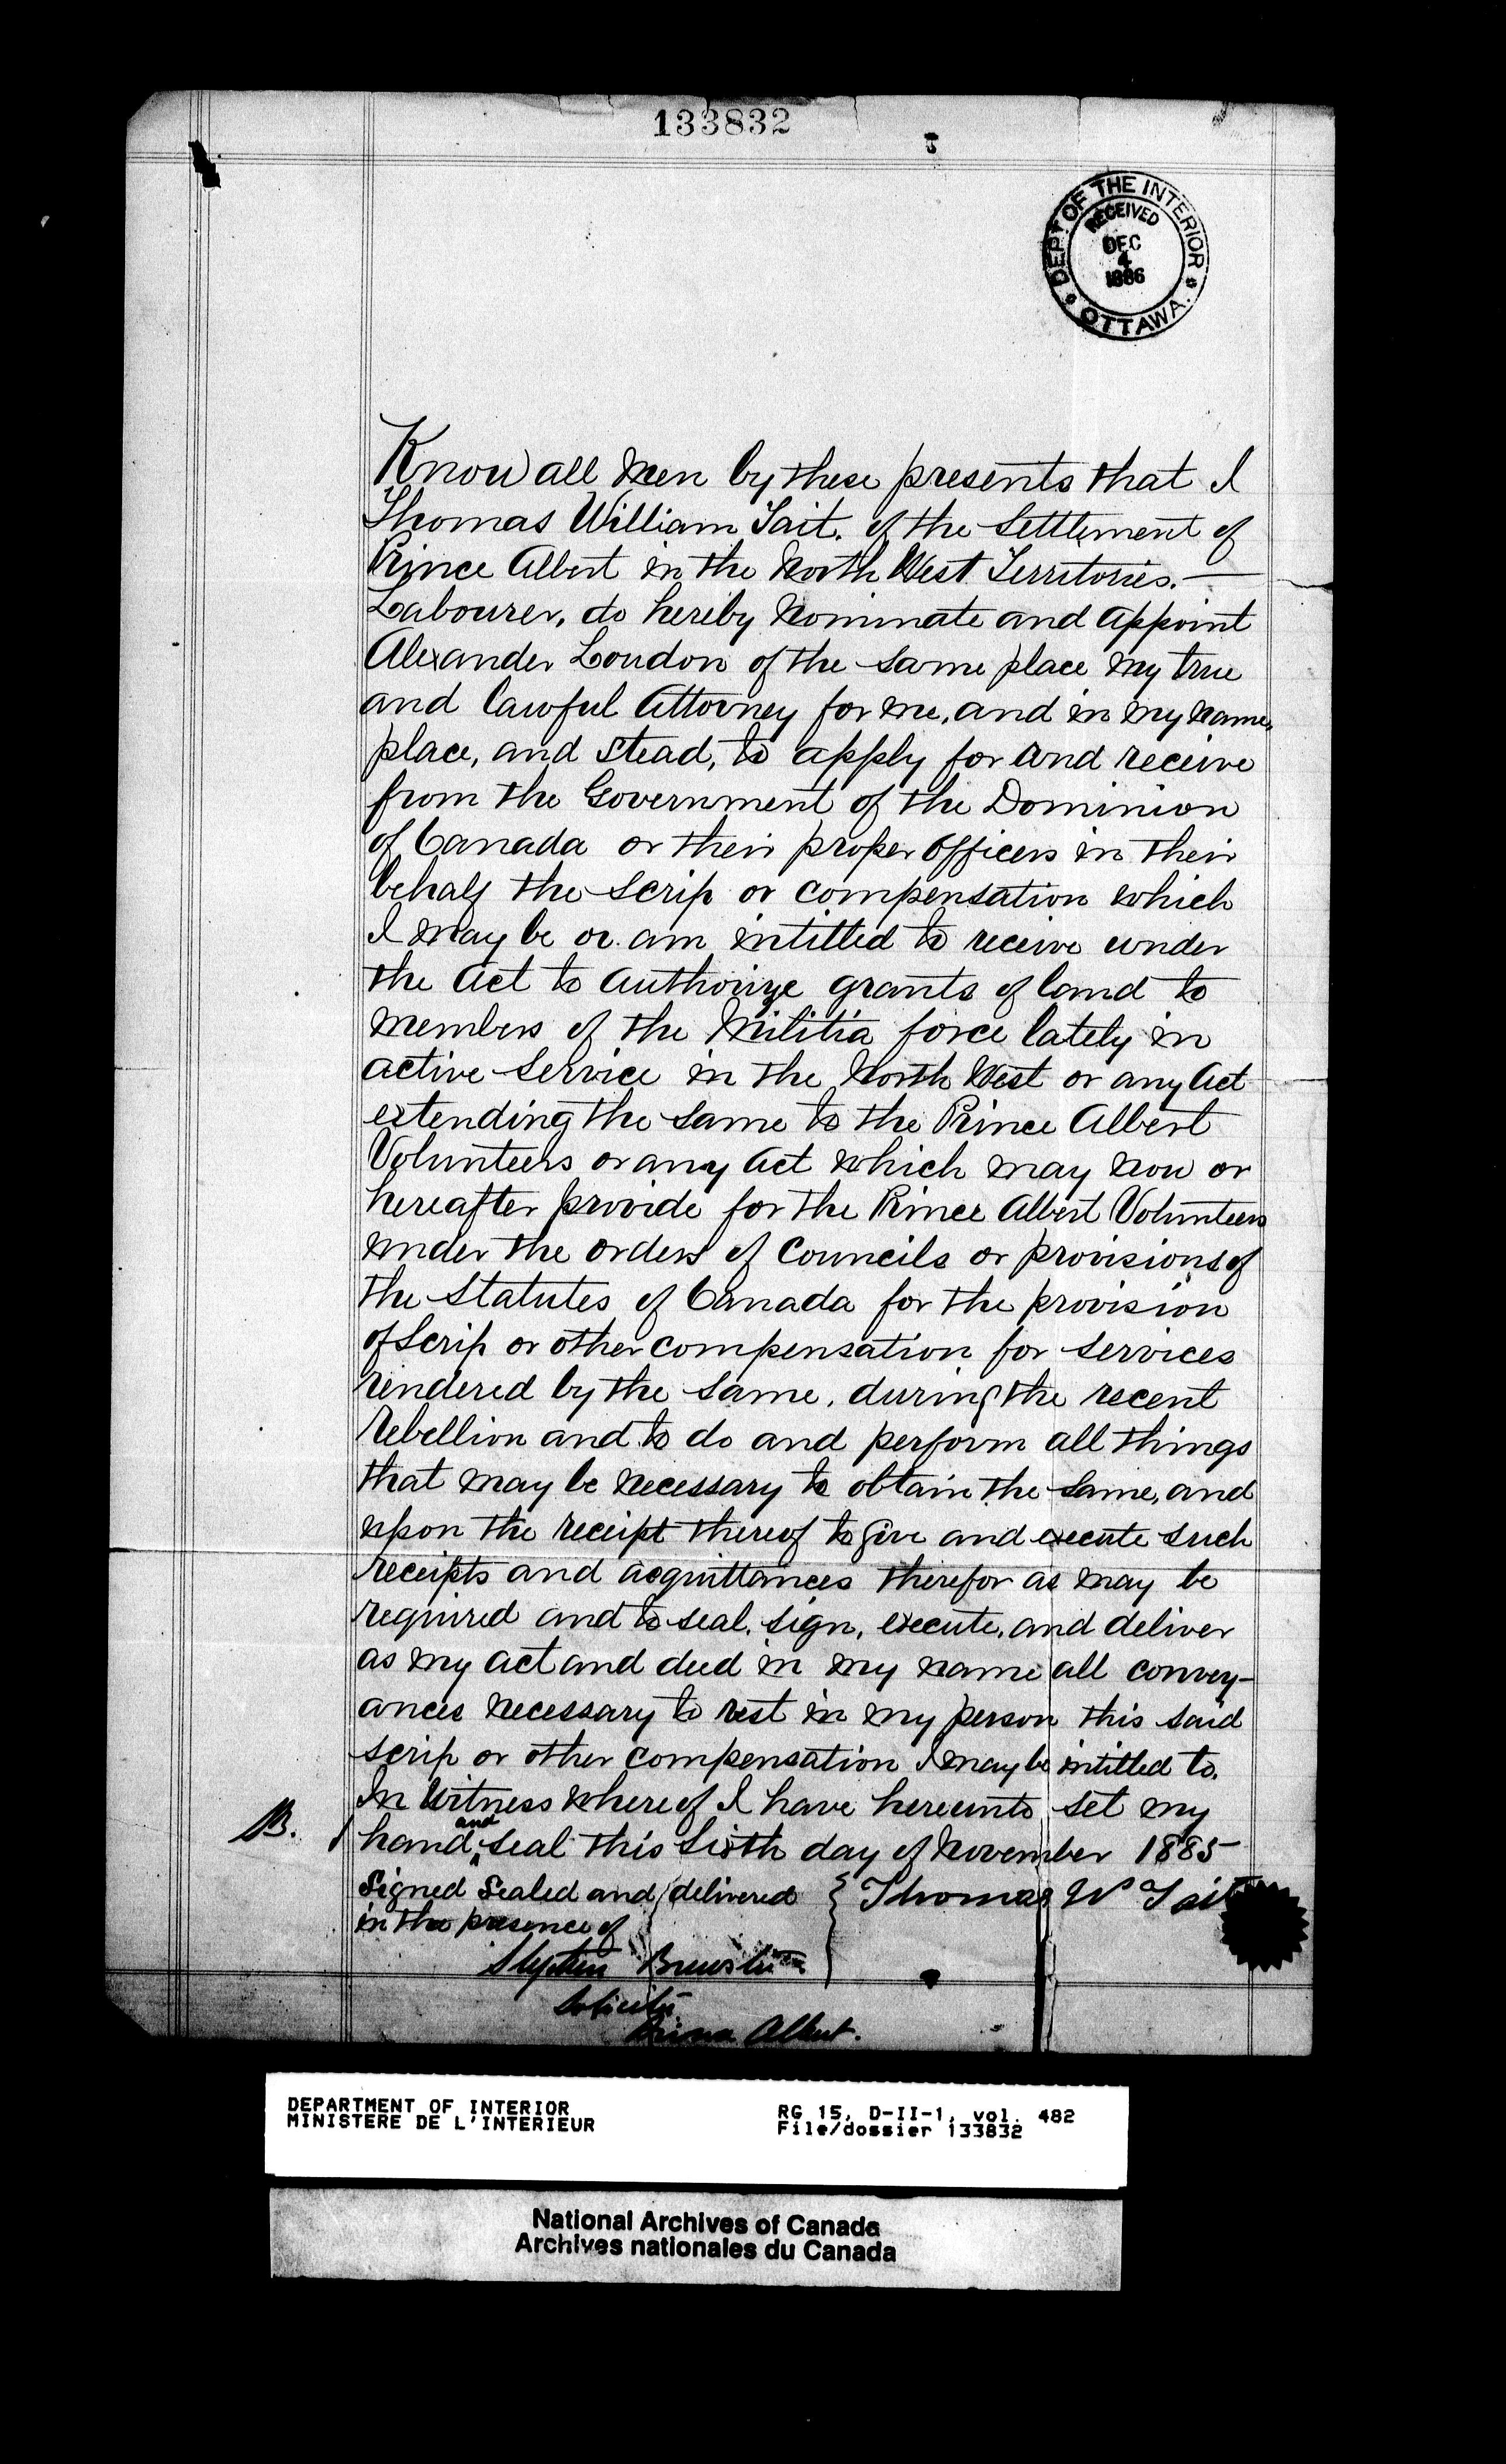 133832
DEPT OF THE INTERIOR
RECEIVED
DEC
4
1886
OTTAWA.
Know all Men by these presents that I
Thomas William Tait. of the Settlement of
Prince Albert in the North West Territories. —
Labourer, do hereby Nominate and Appoint
Alexander Loudon of the same place my true
and lawful Attorney for me, and in my name,
place, and stead, to apply for and receive
from the Government of the Dominion
of Canada or their proper Officers in their
behalf the Scrip or compensation which
I may be or am intitled to receive under
the Act to Authorize grants of land to
Members of the Militia force lately in
active Service in the North West or any Act
extending the same to the Prince Albert
Volunteers or any Act which may now or
hereafter provide for the Prince Albert Volunteers
under the orders of Councils or provisions of
the Statutes of Canada for the provision
of Scrip or other compensation for services
rendered by the same, during the recent
Rebellion and to do and perform all things
that may be necessary to obtain the same, and
upon the receipt thereof to give and execute such
receipts and acquittances therefor as may be
required and to seal, sign, execute, and deliver
as my act and deed in my name all convey-
ances necessary to vest in my person this said
scrip or other compensation I may be intitled to.
In Witness whereof I have hereunto set my
B. hand and seal this Sixth day of November 1885
Signed Sealed and delivered } Thomas W Tait
in the presence of
Stephen Brewster
Solicitor
Prince Albert.
DEPARTMENT OF INTERIOR
MINISTERE DE L'INTERIEUR
RG 15, D-II-1, vol. 482
File/dossier 133832
National Archives of Canada
Archives nationales du Canada